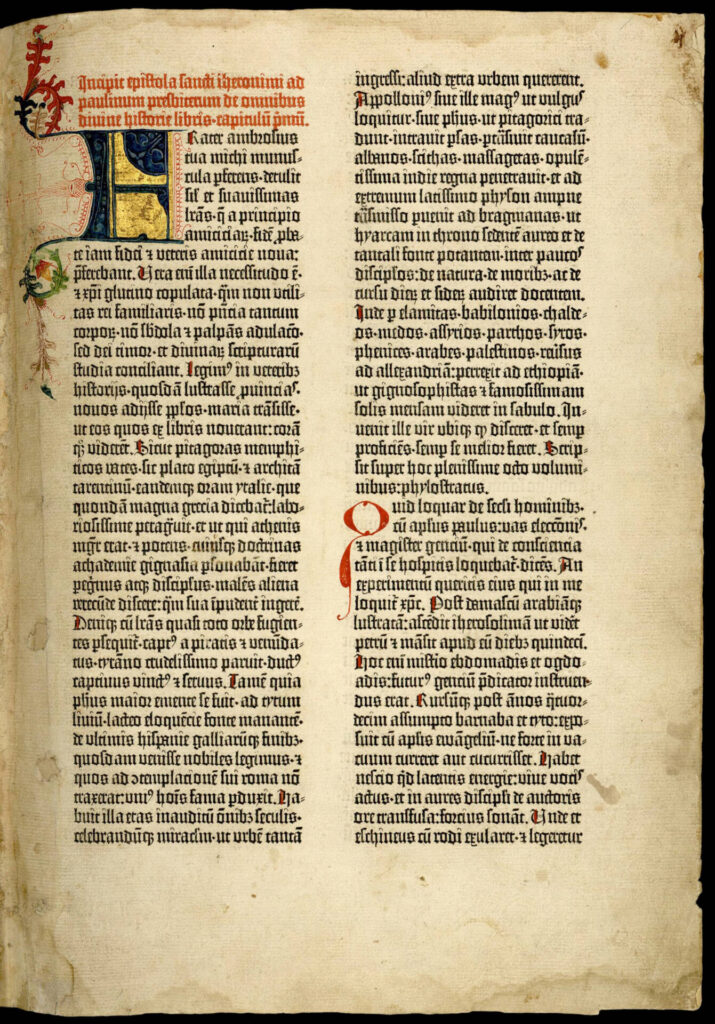 Incipit epistola sancti iheronimi ad
paulinum presbiterum de omnibus
divine historie libris·capitulū p̄mū.
Frater ambrosius
tua michi munus-
cula pferens·detulit
sil̄ et suavissimas
lr̄as·q̄ a principio
amiciciaꝝ·fidē ꝓba-
te iam fidei et veteris amicicie nova:
p̄ferebant. Vera eni̅ illa necessitudo ē·
⁊ xp̄i glutino copulata·qm̄ non utili-
tas rei familiaris·nō p̄ncia tantum
corpoꝝ·nō s̄bdola ⁊ palpās adulacō·
sed dei timor·et divinaꝝ scripturarū
studia conciliant. Legimꝰ in veteribꝫ
historijs·quosdā lustrasse ꝓvinciaˢ·
novos adijsse pplos·maria trāsisse·
ut eos quos ex libris noverant: corā
qꝫ viderēt. Sicut pitagoras memphi-
ticos vates·sic plato egiptū·⁊ architā
tarentinū·eandemqꝫ oram ytalie·que
quondā magna grecia dicebat̄: labo-
riosissime peragͣvit·et ut qui athenis
mgr̄ erat·⁊ potens·cuiusqꝫ doctrinas
achademie gignasia ꝑsonabāt·fieret
peg̓nus atqꝫ discipulus·malēs aliena
verecūde discere: qm̄ sua īpudent̄ ingerē.
Deniqꝫ cū lr̄as quasi toto orbe fugien-
tes ꝑsequit̄·captꝰ a piratis ⁊ venūda-
tus·tyrāno crudelissimo paruit·ductꝰ
captivus vinctꝰ ⁊ servus. Tamē quia
phūs maior emente se fuit·ad tytum
liviū·lacteo eloquēcie fonte manantē·
de ultimis hispanie galliarūqꝫ finibꝫ·
quosdam venisse nobiles legimus·⁊
quos ad ꝯtemplacionē sui roma nō
traxerat: uniꝰ hoīs fama ꝑduxit. Ha-
buit illa etas inauditū ōnibꝫ seculis·
celebrandūqꝫ miraclm̄·ut urbē tantā
ingressi: aliud extra urbem quererent.
Appolloniꝰ sive ille magꝰ ut vulgus
loquitur·sive phūs·ut pitagorici tra-
dunt·intravit ꝑsas·ptn̄sivit caucasū·
albanos·scithas·massagetas·opulē-
tissima indie regna penetravit·et ad
extremum latissimo physon ampne
trāsmisso ꝑvenit ad bragmanas·ut
hyarcam in throno sedentē aureo et de
tantali fonte potantem·inter paucos
discipl̄os: de natura·de moribꝫ·ac de
cursu dieꝝ et sideꝝ audiret docentem.
Inde ꝑ elamitas·babilonios·chalde-
os·medos·assyrios·parthos·syros·
phenices·arabes·palestinos·reversus
ad allexandriā: perrexit ad ethiopiā·
ut gignosophistas ⁊ famosissimam
solis mensam videret in sabulo. In-
venit ille vir ubiqꝫ qd̄ disceret·et semꝑ
proficiēs·semꝑ se melior fieret. Scrip-
sit super hoc plenissime octo volumi-
nibus: phylostratus.
Quid loquar de secl̄i hominibꝫ·
cū apl̄us paulus: vas eleccōnis·
⁊ magister genciū·qui de consciencia
tāti ī se hospitis loquebat̄·dicēs. An
experimentū queritis eius qui in me
loquit̄ xp̄c. Post damascū arabiāqꝫ
lustratā: ascēdit iherosolimā ut vidēt
petrū ⁊ māsit apud eū diebꝫ quindeci̅.
Hoc eni̅ mist̓io ebdomadis et ogdo-
adis: futurꝰ genciū p̄dicator instruen-
dus erat. Rursūqꝫ post ānos qͣtuor-
decim assumpto barnaba et tyto: expo-
suit cū apl̄is ewāgeliū·ne forte in va-
cuum curreret aut cucurrisset. Habet
nescio qd̄ latentis energie: vive vocis
actus·et in aures discipl̄i de auctoris
ore transfusa: forcius sonāt. Unde et
eschineus cū rodi exularet·⁊ legeretur